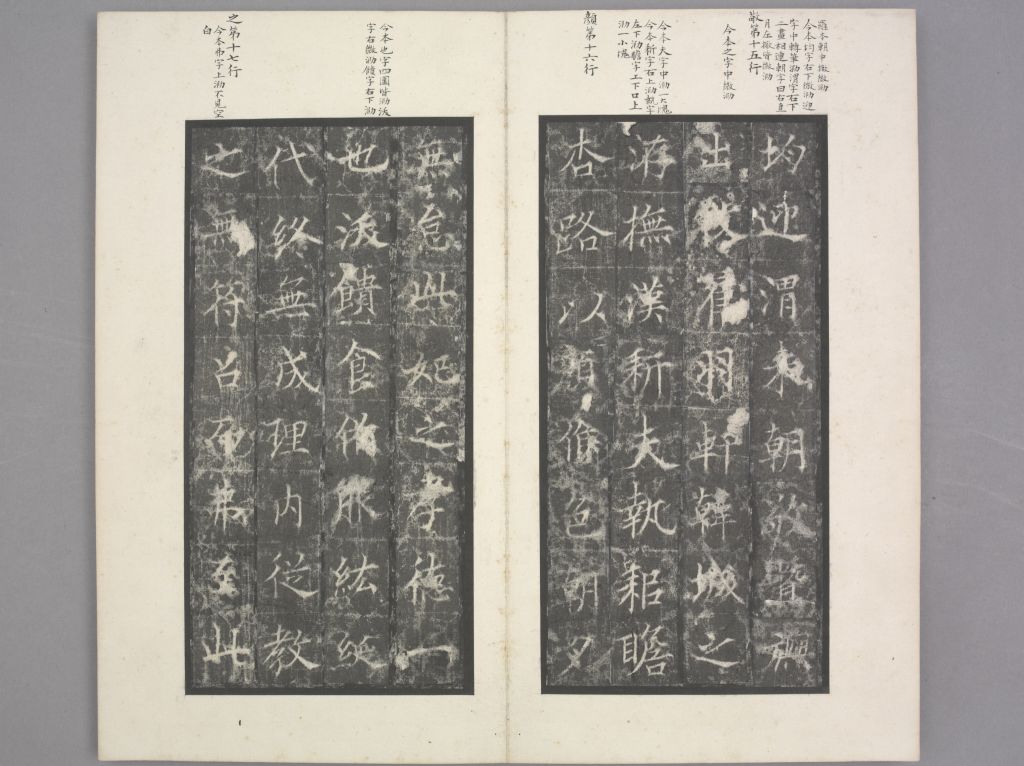 羅本朝中微泐
今本均字右下微泐迎
字中轉筆泐渭字右下
二畫相連朝字日右直
月左撇皆微泐
敬第十五行
今本之字中微泐
今本夫字中泐一片塊
今本祈字右上泐執字
左下泐瞻字工下口上
泐一小塊
顏第十六行
均迎渭朝敬暨
出翟羽軒韓城之
游撫漢祈夫執耜瞻
杏路以須脩邑朝夕
今本也字四圍皆泐浹
字右微泐饋字右下泐
之第十七行
今本弗字上泐不見空
白
無怠此妃之孝德一
也浹饋食脩服紘綖
代終無成理內從教
之無符召而弗至此